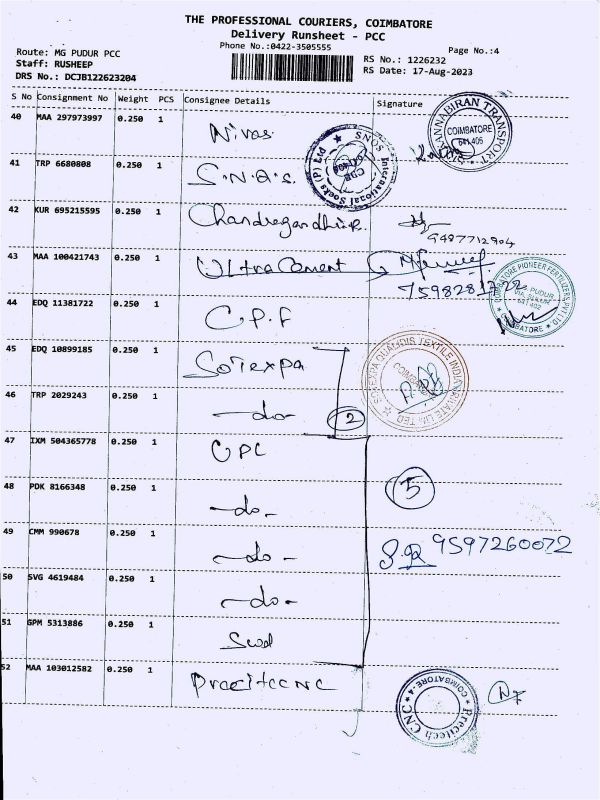 THE PROFESSIONAL COURIERS, COIMBATORE
Delivery Runsheet - PCC
Phone No.:0422-3505555
Page No.:4
Route: MG PUDUR PCC
Staff: RUSHEEP
DRS No.: DCJB122623204
RS No.: 1226232
RS Date: 17-Aug-2023
S No Consignment No Weight PCS Consignee Details Signature
40 MAA 297973997 0.250 1 Nivas
COIMBATORE
641 406
41 TRP 6680808 0.250 1 S.N.Q.S.
SNQS International Socks (P) Ltd
42 KUR 695215595 0.250 1
9487712904
43 MAA 100421743 0.250 1 Ultra Cement
44 EDQ 11381722 0.250 1 C.P.F
COIMBATORE PIONEER FERTILIZERS PVT LTD
641 402
COIMBATORE
45 EDQ 10899185 0.250 1 Sotexpa
SOTEXPA QUALIDIS TEXTILE INDIA PRIVATE LIMITED
COIMBATORE
46 TRP 2029243 0.250 1 -do-
2
47 IXM 504365778 0.250 1 CPC
48 PDK 8166348 0.250 1 -do-
5
49 CMM 990678 0.250 1 -do-
9597260072
50 SVG 4619484 0.250 1 -do-
51 GPM 5313886 0.250 1
52 MAA 103012582 0.250 1 Precitec CNC
Precitech CNC
COIMBATORE-4